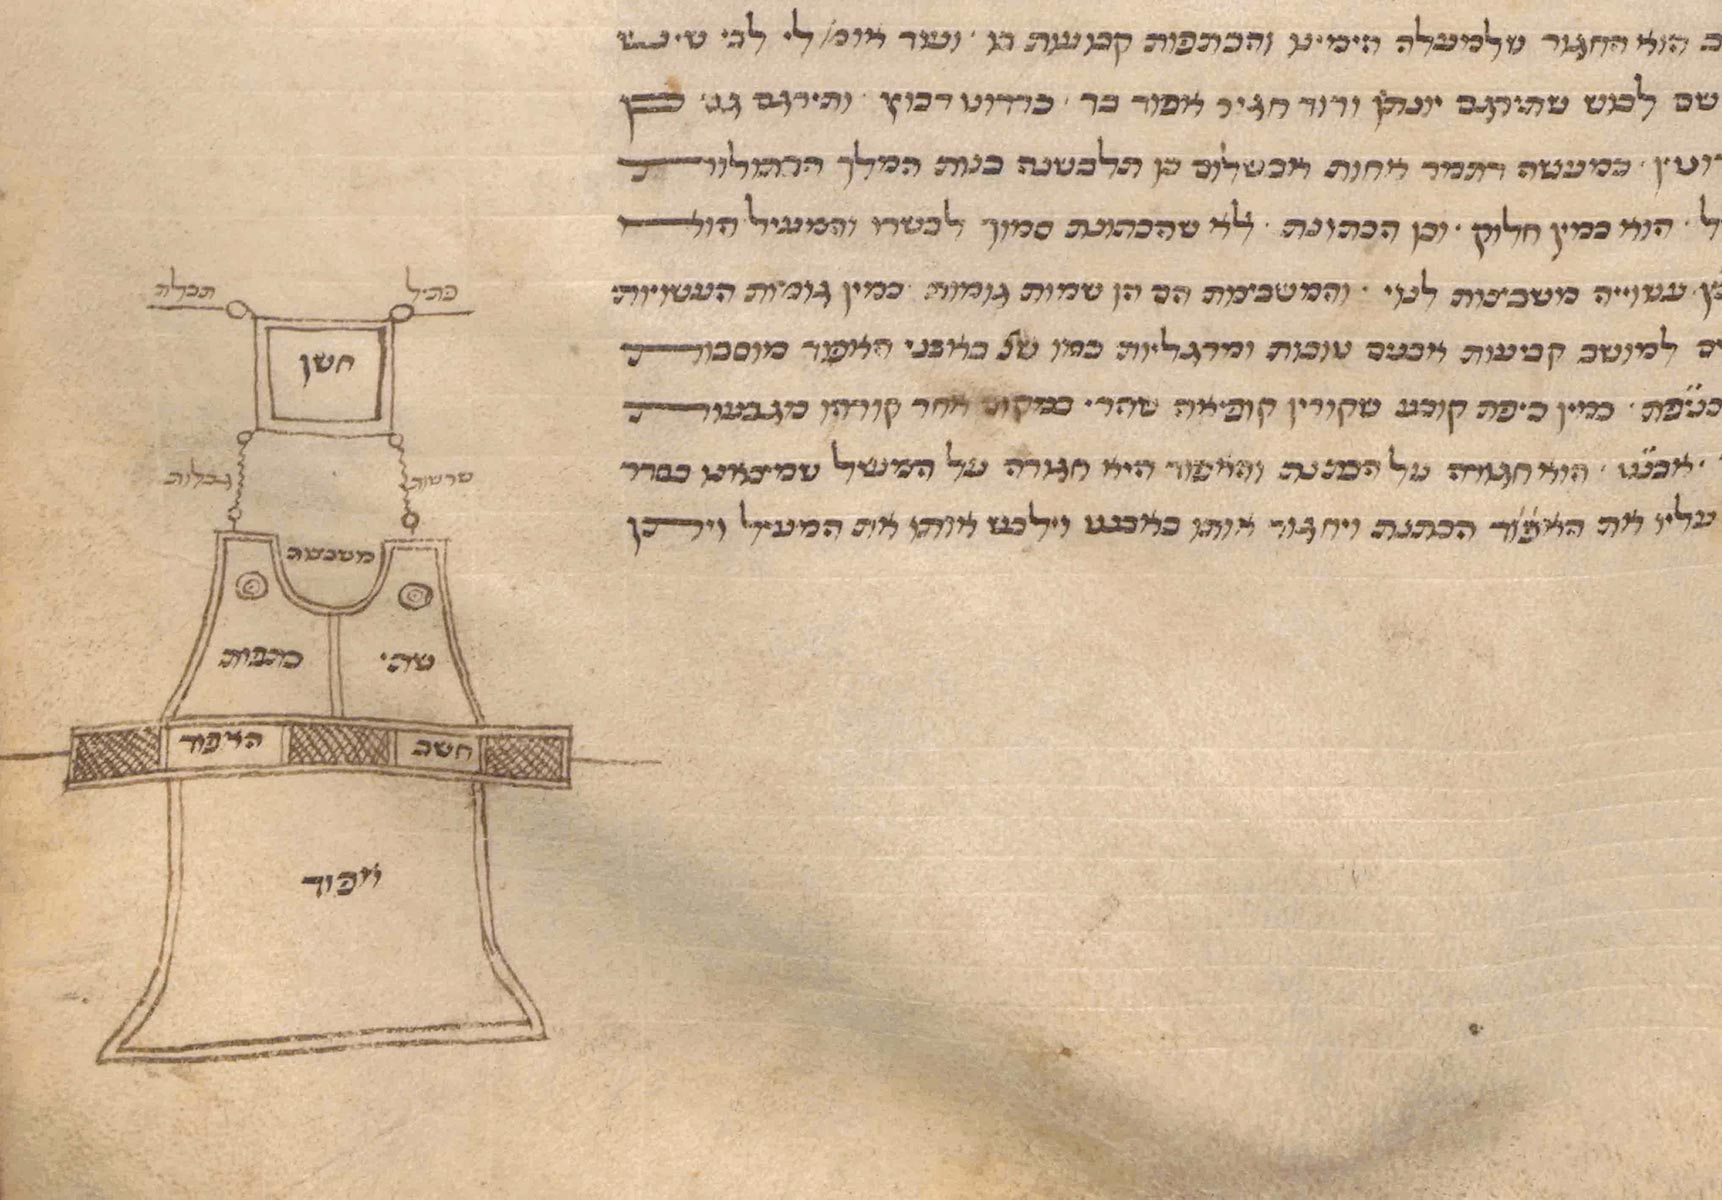 הוא החגור שלמעלה הימינו והכתפות קבועות בו ועוד אומ׳ לי לבי שיש
שם לבוש שתירגם יונתן ודוד חגיר אפוד בד כרדוט דבוץ ותירגם גם כן
כמעשה דתמר אחות אבשלום כן תלבשנה בנות המלך הבתולות
הוא כמין חלוק וכן הכתונת אלא שהכתונת סמוך לבשרו והמעיל הוא
עשוייה משבצות לנוי והמשבצות הם הן שמות גומות כמין גומות העשויות
למושב קביעות אבנים טובות ומרגליות כמו של באבני האפוד מוסבות
כמין כיפת קובע שקורין קופיאה שהרי במקום אחר קורהו מגבעות
אבנט הוא חגורה על הכתנת והאפוד היא חגורה על המעיל שמצאנו בסדר
עליו את האפוד הכתנת ויחגור אותו באבנט וילבש אותו את המעיל ויתן
פתיל תכלת
חשן
שרשות גבלות
משבצות
שתי כתפות
חשב האיפוד
איפוד